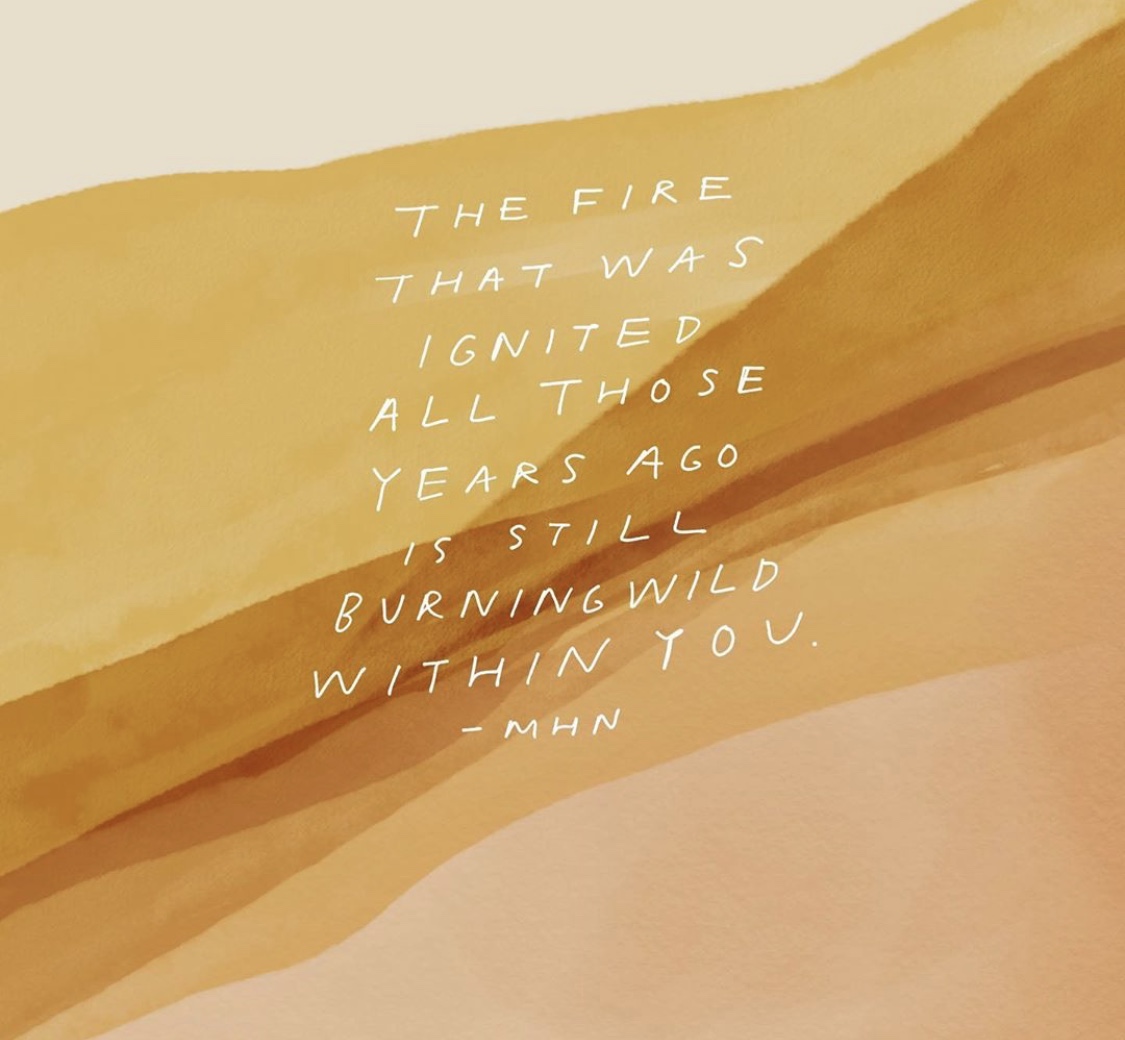 THE FIRE
THAT WAS
IGNITED
ALL THOSE
YEARS AGO
IS STILL
BURNING WILD
WITHIN YOU.
-MHN